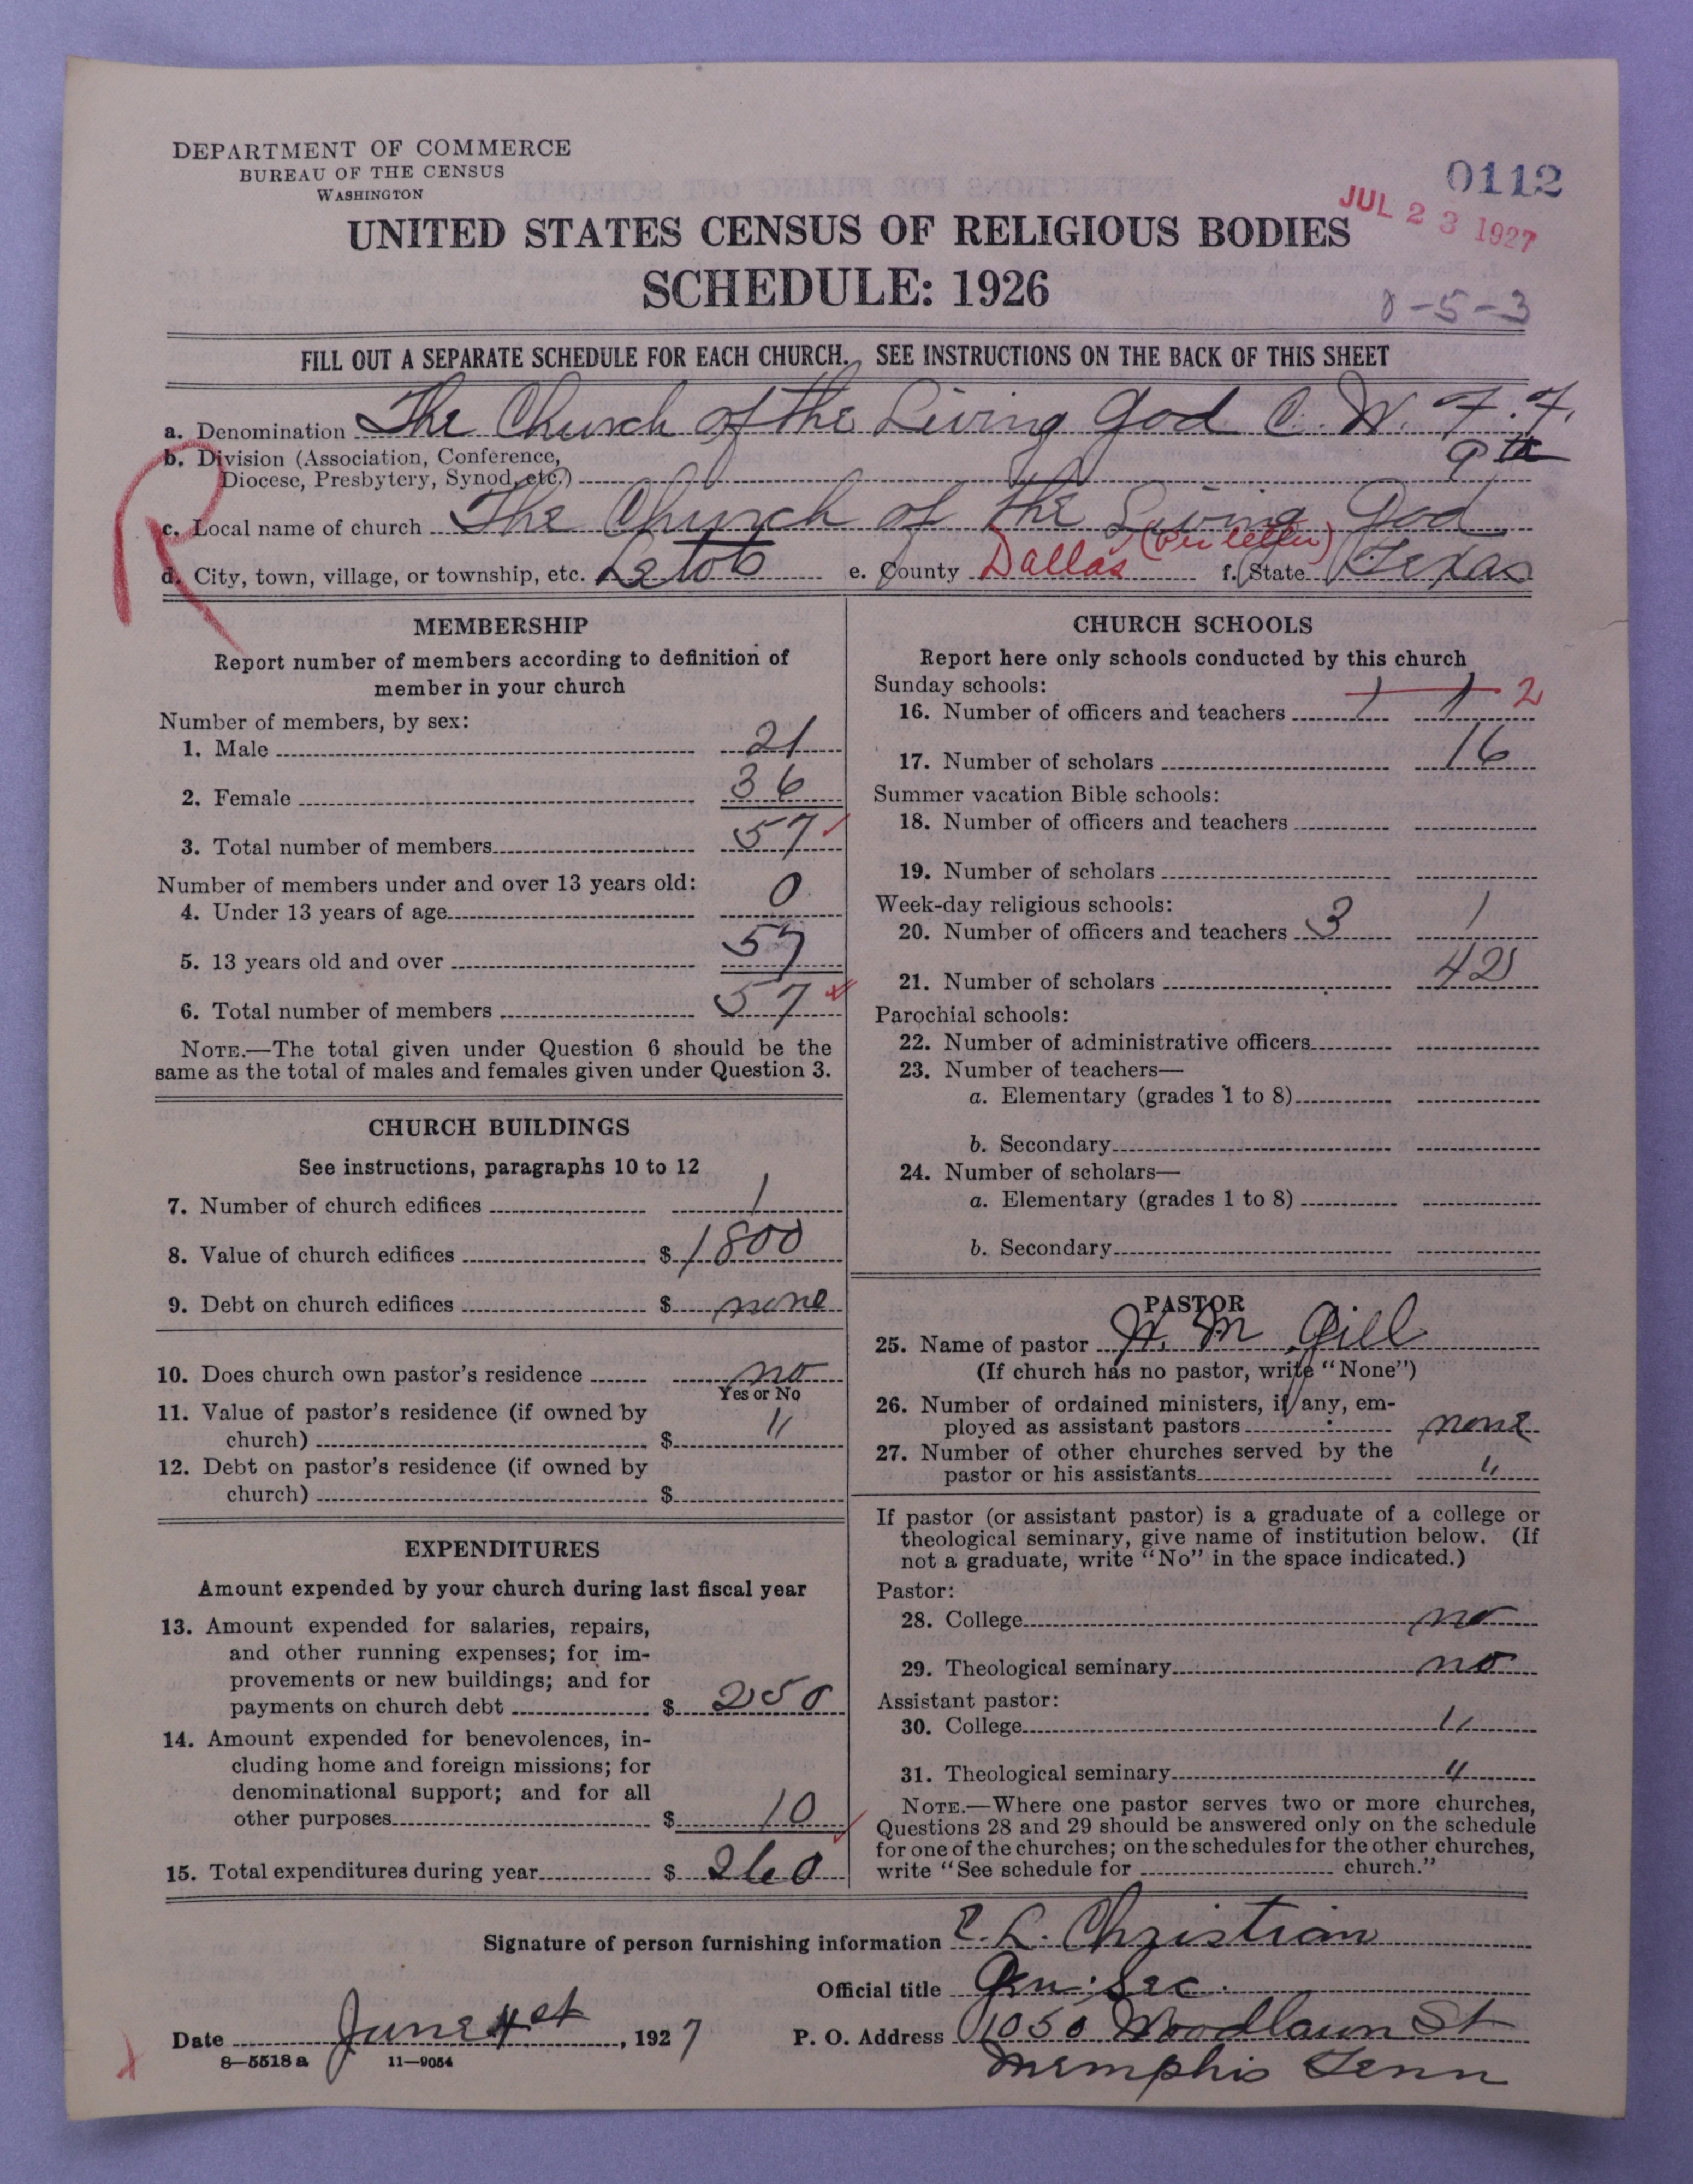 DEPARTMENT OF COMMERCE
BUREAU OF THE CENSUS
WASHINGTON
0112
JUL 23 1927
UNITED STATES CENSUS OF RELIGIOUS BODIES
SCHEDULE: 1926
8-5-3
FILL OUT A SEPARATE SCHEDULE FOR EACH CHURCH. SEE INSTRUCTIONS ON THE BACK OF THIS SHEET
a. Denomination The Church of the Living God C. W. F. F.
b. Division (Association, Conference,
Diocese, Presbytery, Synod, etc.) 9th
c. Local name of church The Church of the Living God
R
d. City, town, village, or township, etc. e. County Dallas (per letter) f. State Texas
MEMBERSHIP
Report number of members according to definition of
member in your church
Number of members, by sex:
1. Male 21
2. Female 36
3. Total number of members 57
Number of members under and over 13 years old:
4. Under 13 years of age 0
5. 13 years old and over 57
6. Total number of members 57
NOTE.—The total given under Question 6 should be the
same as the total of males and females given under Question 3.
CHURCH BUILDINGS
See instructions, paragraphs 10 to 12
7. Number of church edifices 1
8. Value of church edifices $ 1800
9. Debt on church edifices $ none
10. Does church own pastor's residence no
Yes or No
11. Value of pastor's residence (if owned by
church) $ "
12. Debt on pastor's residence (if owned by
church) $
EXPENDITURES
Amount expended by your church during last fiscal year
13. Amount expended for salaries, repairs,
and other running expenses; for im-
provements or new buildings; and for
payments on church debt $ 250
14. Amount expended for benevolences, in-
cluding home and foreign missions; for
denominational support; and for all
other purposes $ 10
15. Total expenditures during year $ 260
CHURCH SCHOOLS
Report here only schools conducted by this church
Sunday schools:
16. Number of officers and teachers 1 1 2
17. Number of scholars 16
Summer vacation Bible schools:
18. Number of officers and teachers
19. Number of scholars
Week-day religious schools:
20. Number of officers and teachers 3 1
21. Number of scholars 42
Parochial schools:
22. Number of administrative officers
23. Number of teachers—
a. Elementary (grades 1 to 8)
b. Secondary
24. Number of scholars—
a. Elementary (grades 1 to 8)
b. Secondary
PASTOR
25. Name of pastor W. M Gill
(If church has no pastor, write "None")
26. Number of ordained ministers, if any, em-
ployed as assistant pastors none
27. Number of other churches served by the
pastor or his assistants "
If pastor (or assistant pastor) is a graduate of a college or
theological seminary, give name of institution below. (If
not a graduate, write "No" in the space indicated.)
Pastor:
28. College no
29. Theological seminary no
Assistant pastor:
30. College "
31. Theological seminary "
NOTE.—Where one pastor serves two or more churches,
Questions 28 and 29 should be answered only on the schedule
for one of the churches; on the schedules for the other churches,
write "See schedule for church."
Signature of person furnishing information E. L. Christian
Official title Gen. Sec.
Date June 4st, 1927 P. O. Address 1050 Woodlawn St
8—5518 a 11—9054
Memphis Tenn